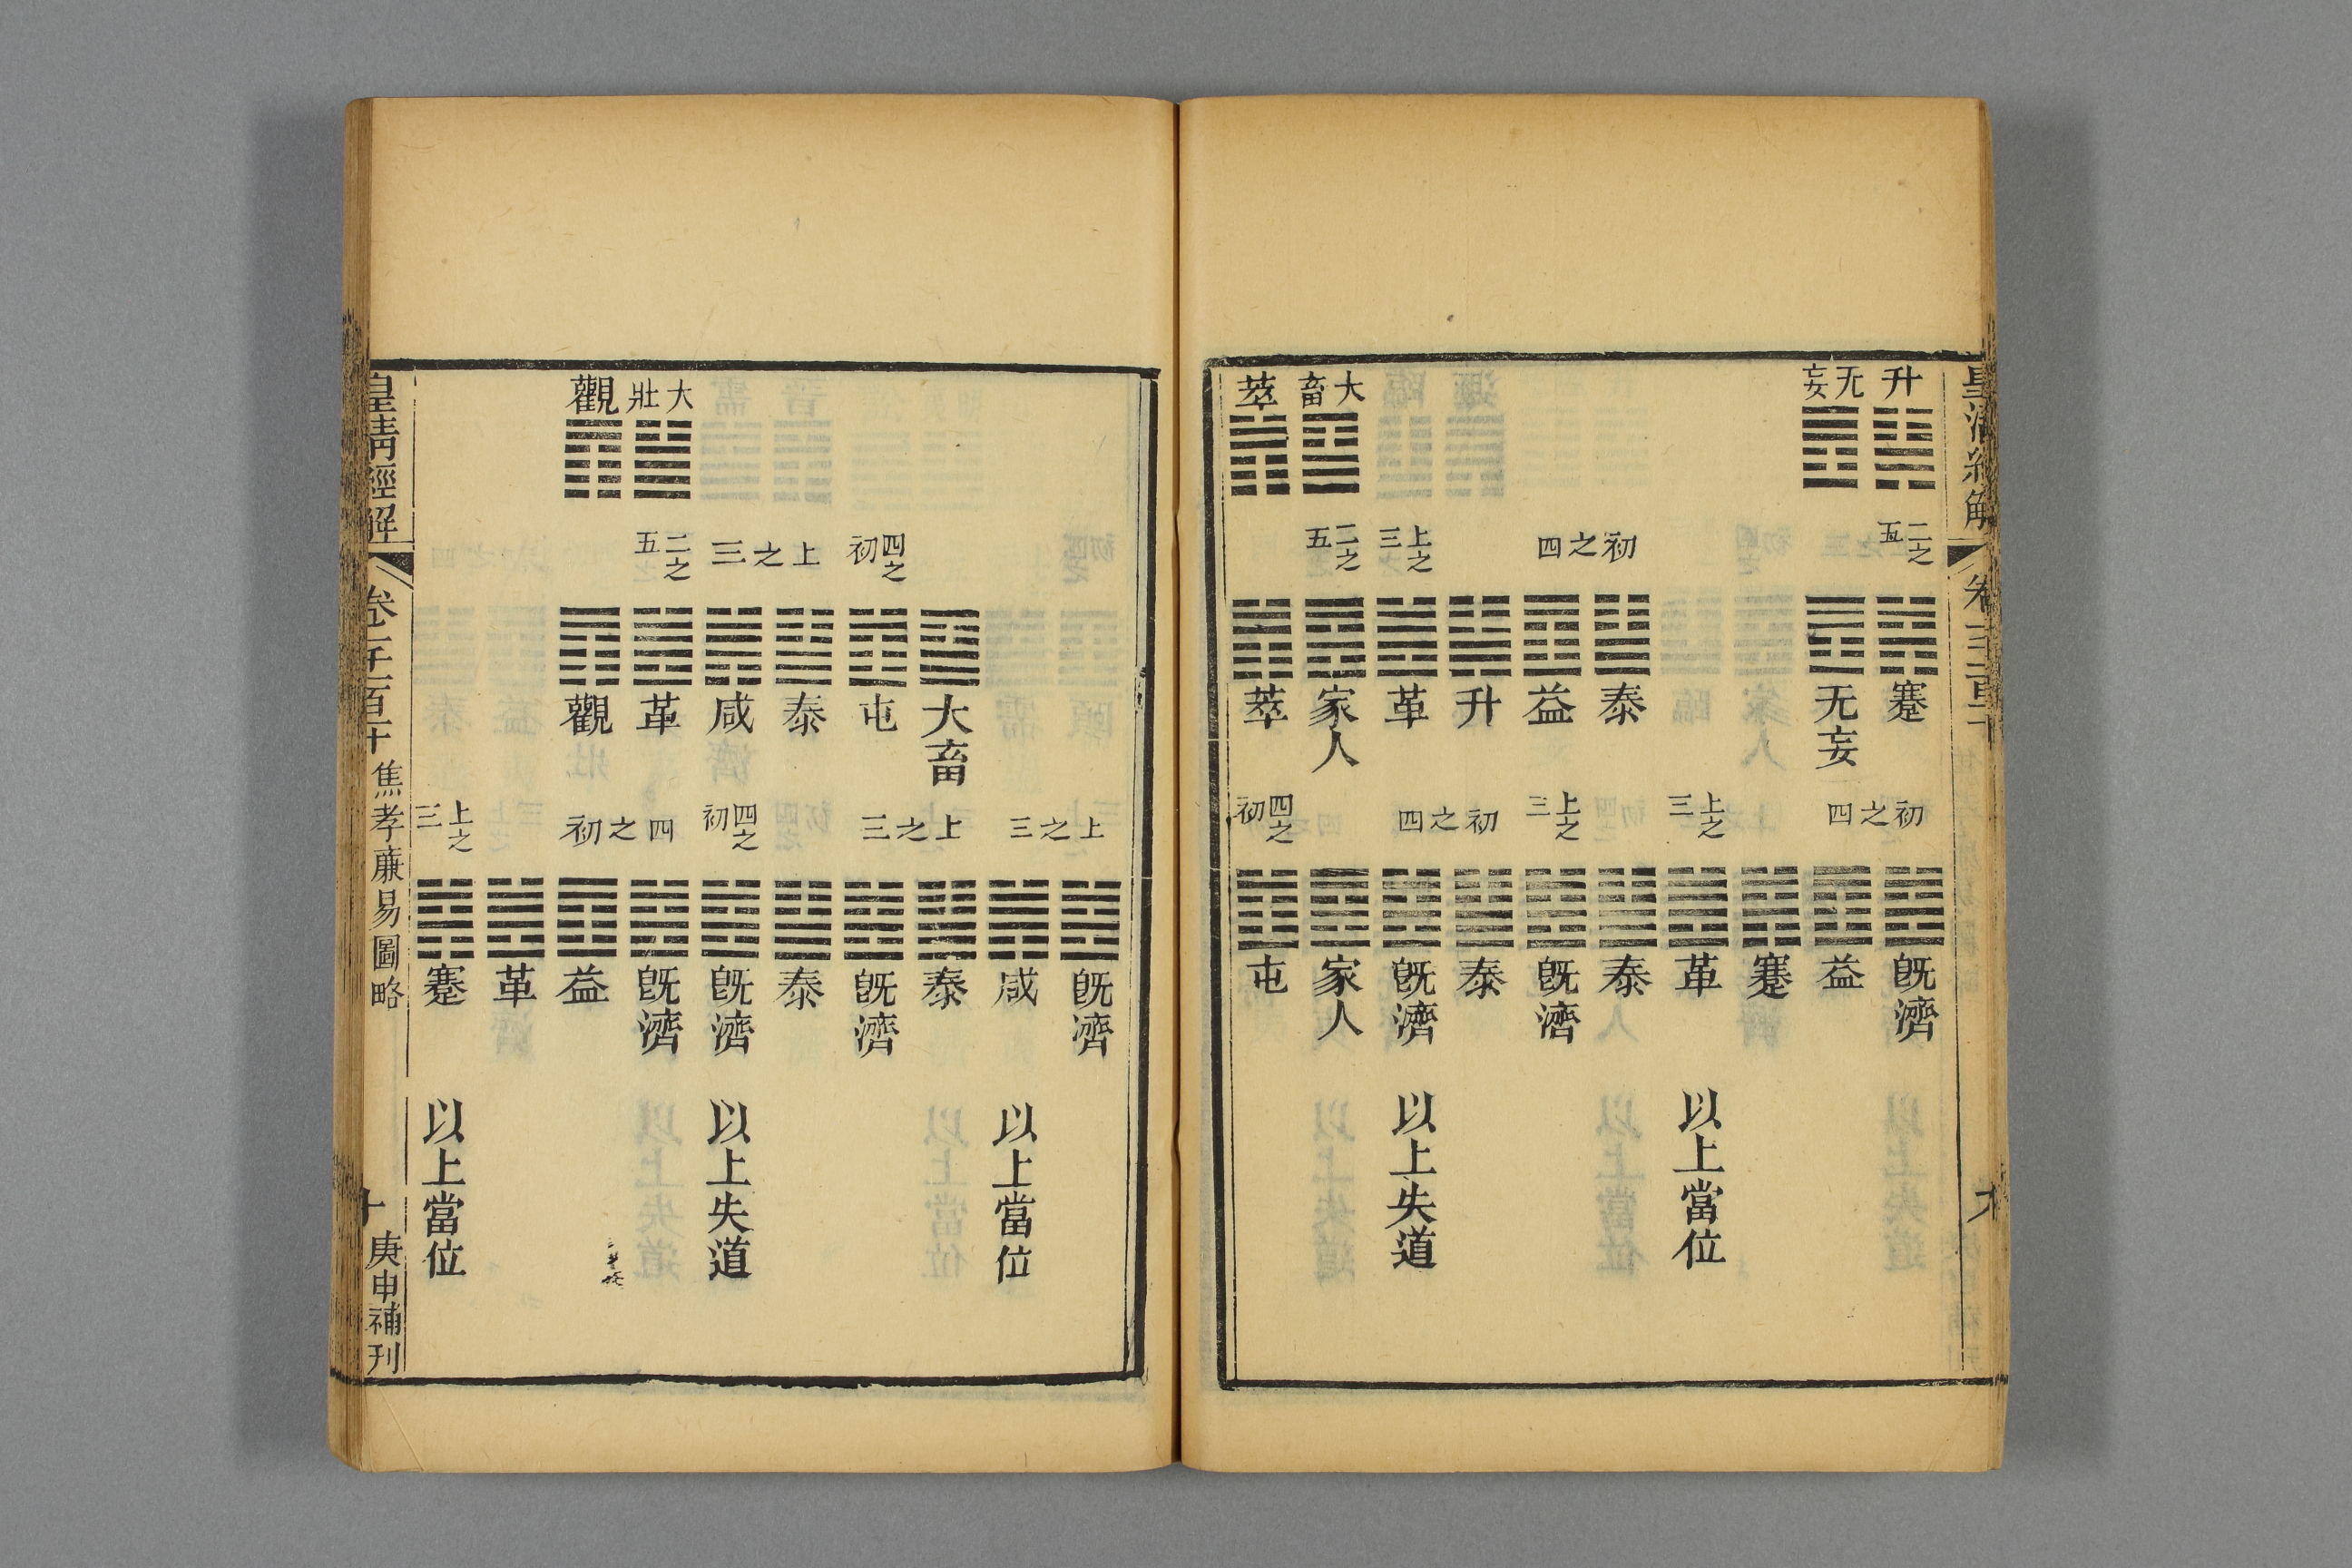 皇清經解
卷一千一百十
九
升
二之五
蹇
初之四
既濟
无妄
无妄
益
蹇
上之三
革
以上當位
泰
初之四
泰
益
既濟
上之三
升
泰
初之四
上之三
革
既濟
以上失道
大畜
二之五
家人
家人
萃
萃
四之初
屯
既濟
上之三
咸
以上當位
大畜
泰
上之三
四之初
屯
既濟
泰
上之三
泰
咸
既濟
四之初
以上失道
大壯
二之五
革
既濟
四之初
觀
觀
益
革
上之三
蹇
以上當位
皇清經解
卷一千一百十
焦孝廉易圖略
十
庚申補刊